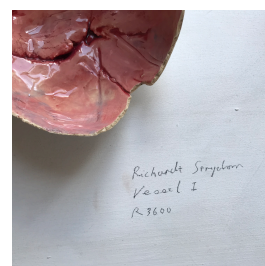 Richardt Strydom
Vessel I
R3600